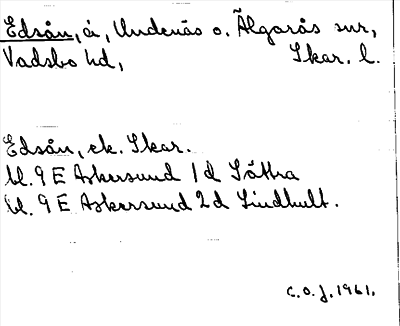 Edsån, å, Undenäs o. Älgarås snr,
Vadsbo hd, Skar. l.
Edsån, ek. Skar.
bl. 9 E Askersund 1 d Sätra
bl. 9 E Askersund 2 d Lindhult.
C.O.J. 1961.